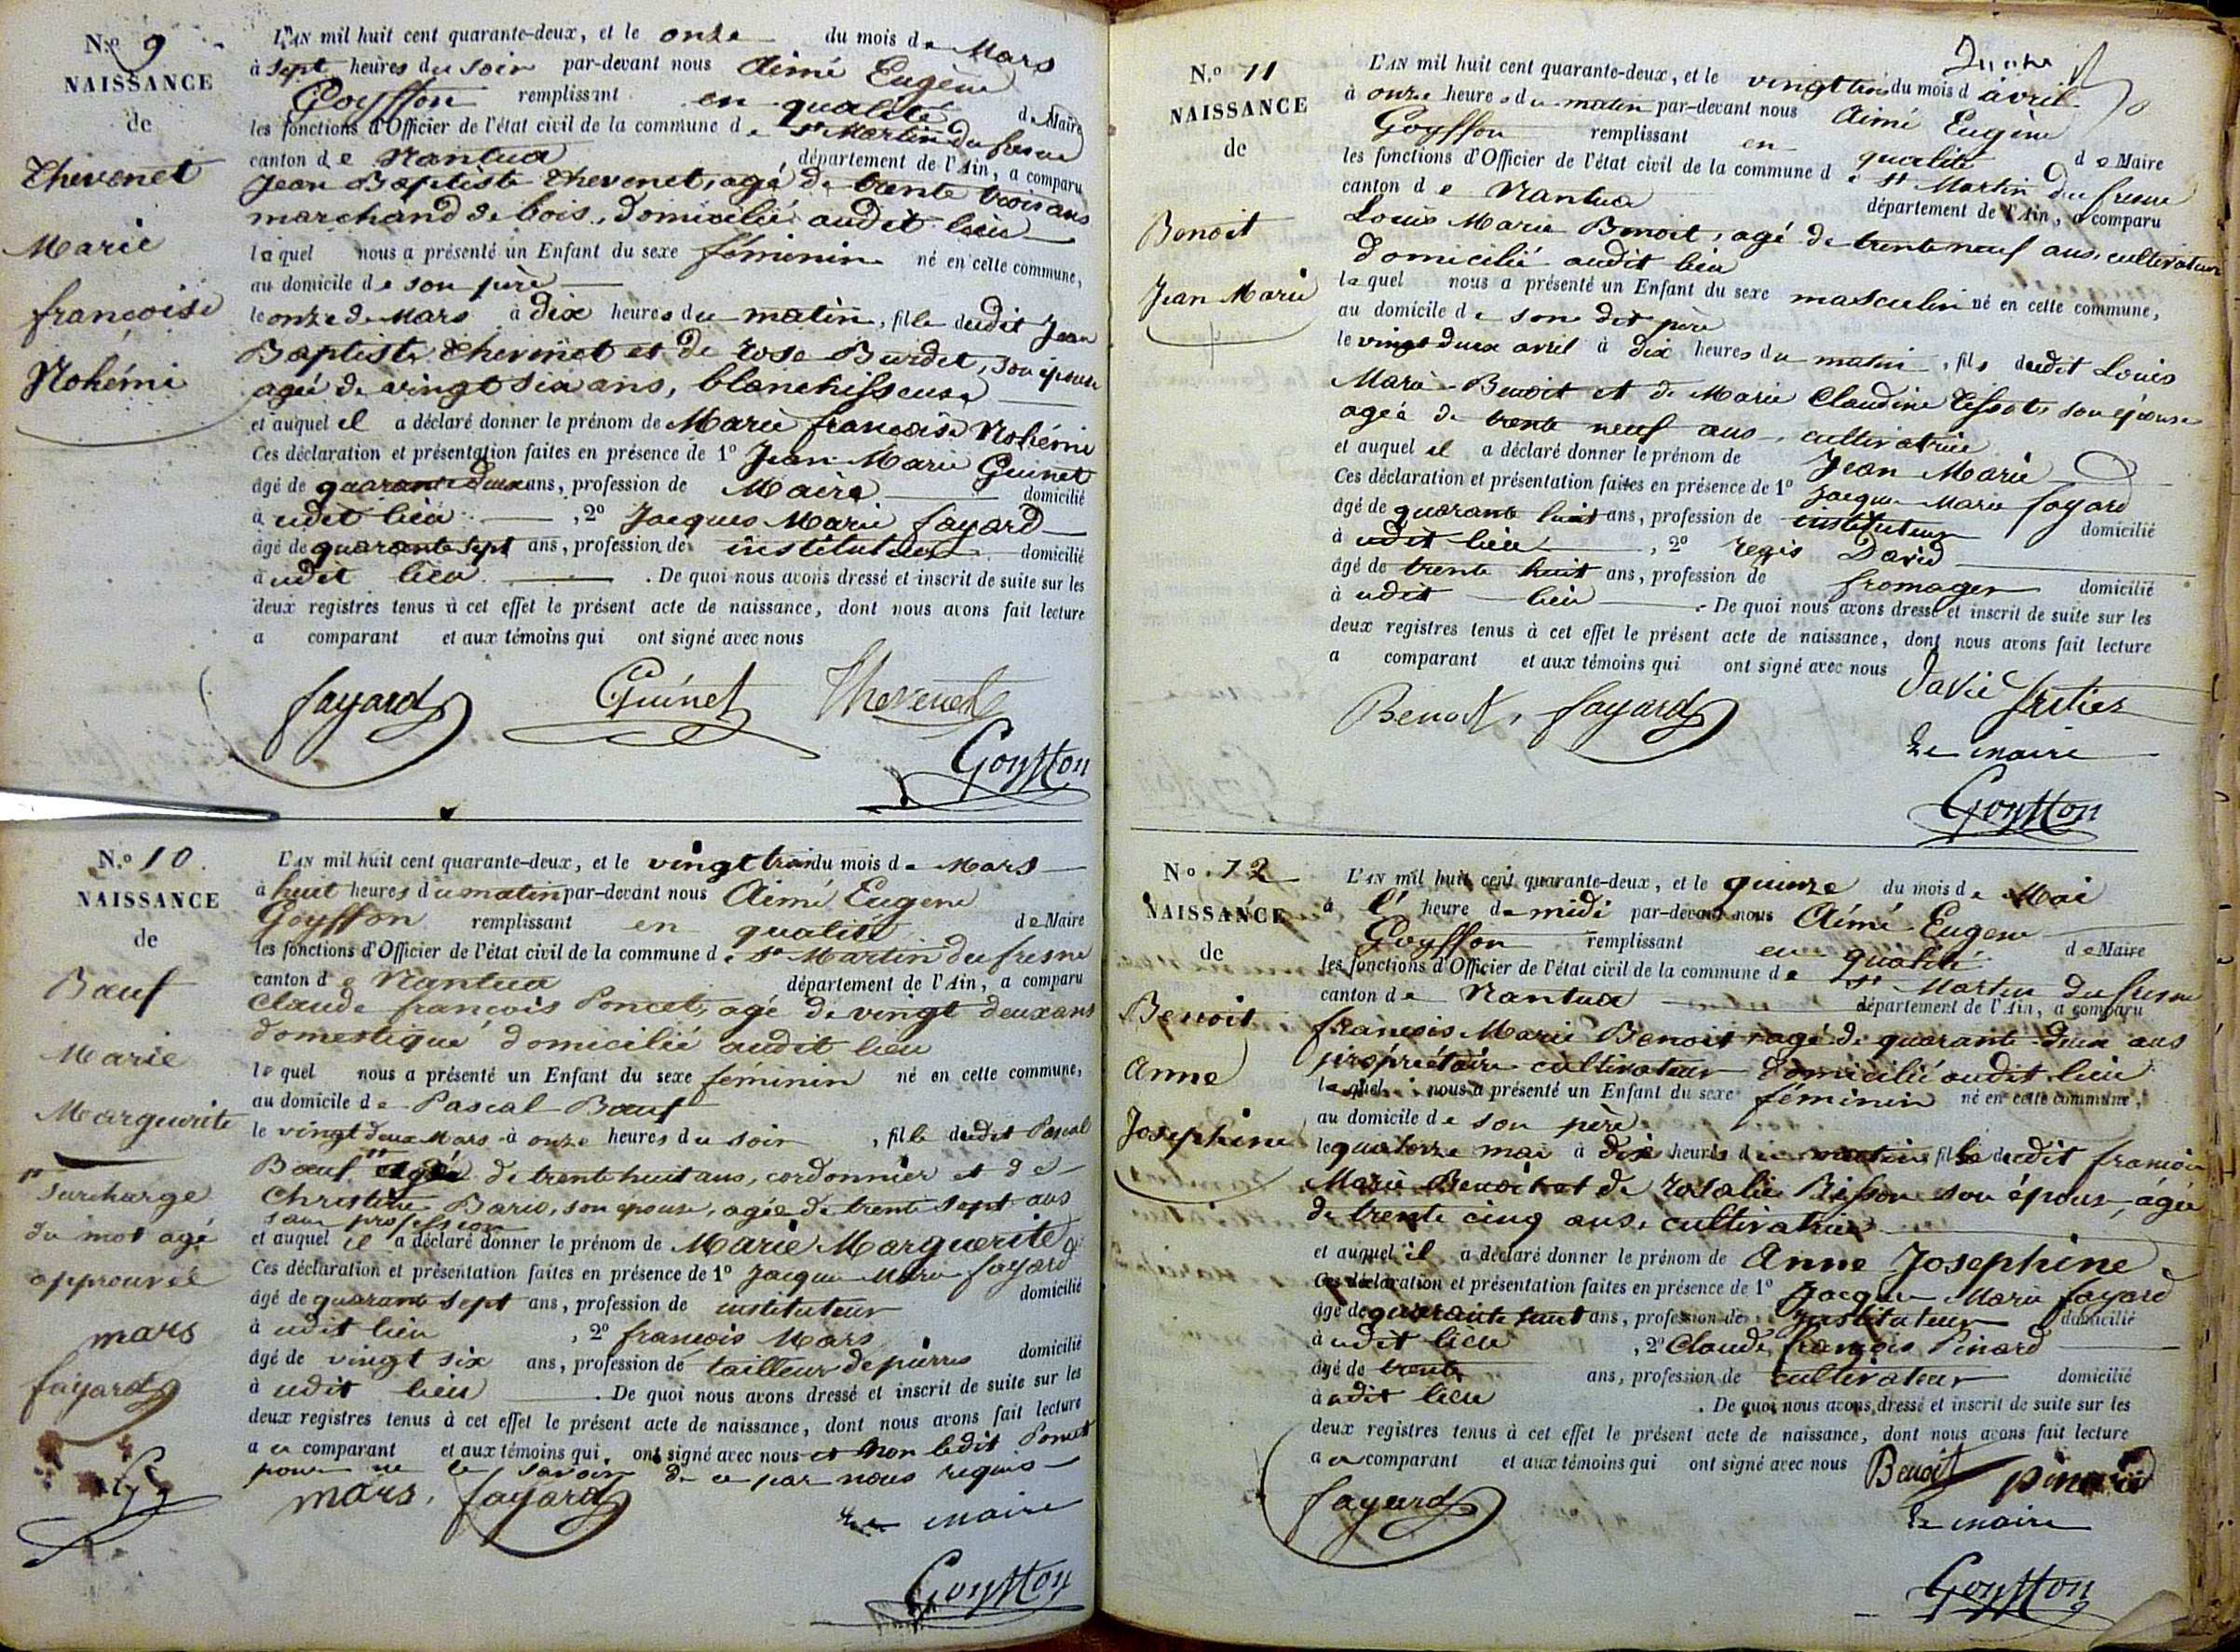 N.o 9
NAISSANCE
de
Thevenet
Marie
françoise
Nohémi
L'AN mil huit cent quarante-deux, et le onze du mois de Mars
à sept heures du soir par-devant nous Aimé Eugène
Goyffon remplissant en qualité de Maire
les fonctions d'Officier de l'état civil de la commune de St Martin du fresne
canton de Nantua département de l'Ain, a comparu
Jean Baptiste Thevenet, agé de trente trois ans
marchand de bois, domicilié audit lieu
lequel nous a présenté un Enfant du sexe féminin né en cette commune,
au domicile de son père
le onze de Mars à dix heures du matin, fille dudit Jean
Baptiste Thevenet et de rose Burdet, son épouse
agée de vingt six ans, blanchisseuse
et auquel il a déclaré donner le prénom de Marie françoise Nohémi
Ces déclaration et présentation faites en présence de 1o Jean Marie Guinet
âgé de quarante deux ans, profession de Maire domicilié
à udit lieu, 2o Jacques Marie fayard
âgé de quarante sept ans, profession de instituteur domicilié
à udit lieu. De quoi nous avons dressé et inscrit de suite sur les
deux registres tenus à cet effet le présent acte de naissance, dont nous avons fait lecture
a comparant et aux témoins qui ont signé avec nous
fayard Guinet Thevenet
Goyffon
N.o 10
NAISSANCE
de
Bœuf
Marie
Marguerite
surcharge
du mot agé
approuvée
mars
fayard
L'AN mil huit cent quarante-deux, et le vingt trois du mois de Mars
à huit heures du matin par-devant nous Aimé Eugene
Goyffon remplissant en qualité de Maire
les fonctions d'Officier de l'état civil de la commune de St Martin du fresne
canton de Nantua département de l'Ain, a comparu
Claude françois Poncet, agé de vingt deux ans
domestique domicilié audit lieu
lequel nous a présenté un Enfant du sexe féminin né en cette commune,
au domicile de Pascal Bœuf
le vingt deux Mars à onze heures du soir, fille dudit Pascal
Bœuf agé de trente huit ans, cordonnier et de
Christine Bario, son épouse, agée de trente sept ans
sans profession
et auquel il a déclaré donner le prénom de Marie Marguerite
Ces déclaration et présentation faites en présence de 1o Jacque Marie fayard
âgé de quarante sept ans, profession de instituteur domicilié
à udit lieu, 2o françois Mars
âgé de vingt six ans, profession de tailleur de pierres domicilié
à udit lieu. De quoi nous avons dressé et inscrit de suite sur les
deux registres tenus à cet effet le présent acte de naissance, dont nous avons fait lecture
a ce comparant et aux témoins qui ont signé avec nous et non ledit Poncet
pour ne le savoir de ce par nous requis
mars, fayard
Le maire
Goyffon
N.o 11
NAISSANCE
de
Benoit
Jean Marie
L'AN mil huit cent quarante-deux, et le vingt trois du mois d avril
à onze heures du matin par-devant nous Aimé Eugène
Goyffon remplissant en qualité de Maire
les fonctions d'Officier de l'état civil de la commune de St Martin du fresne
canton de Nantua département de l'Ain, a comparu
Louis Marie Benoit, agé de trente neuf ans, cultivateur
domicilié audit lieu
lequel nous a présenté un Enfant du sexe masculin né en cette commune,
au domicile de son dit père
le vingt deux avril à dix heures du matin, fils dudit Louis
Marie Benoit et de Marie Claudine Tissot son épouse
agée de trente neuf ans, cultivatrice
et auquel il a déclaré donner le prénom de Jean Marie
Ces déclaration et présentation faites en présence de 1o Jacque Marie fayard
âgé de quarante huit ans, profession de instituteur domicilié
à udit lieu, 2o regis David
âgé de trente huit ans, profession de fromager domicilié
à udit lieu. De quoi nous avons dressé et inscrit de suite sur les
deux registres tenus à cet effet le présent acte de naissance, dont nous avons fait lecture
a comparant et aux témoins qui ont signé avec nous
Benoit, fayard David
Le maire
Goyffon
No. 12
NAISSANCE
de
Benoit
Anne
Josephine
L'AN mil huit cent quarante-deux, et le quinze du mois de Mai
à l' heure de midi par-devant nous Aimé Eugene
Goyffon remplissant en qualité de Maire
les fonctions d'Officier de l'état civil de la commune de St Martin du fresne
canton de Nantua département de l'Ain, a comparu
françois Marie Benoit agé de quarante deux ans
propriétaire cultivateur domicilié audit lieu
lequel nous a présenté un Enfant du sexe féminin né en cette commune,
au domicile de son père
le quatorze mai à dix heures du matin, fille dudit françois
Marie Benoit et de rosalie Bisson son épouse, agée
de trente cinq ans, cultivatrice
et auquel il a déclaré donner le prénom de Anne Josephine
Ces déclaration et présentation faites en présence de 1o Jacque Marie fayard
âgé de quarante huit ans, profession de instituteur domicilié
à udit lieu, 2o Claude françois Pinard
âgé de trente ans, profession de cultivateur domicilié
à udit lieu. De quoi nous avons dressé et inscrit de suite sur les
deux registres tenus à cet effet le présent acte de naissance, dont nous avons fait lecture
a ce comparant et aux témoins qui ont signé avec nous Benoit pinard
fayard
Le maire
Goyffon